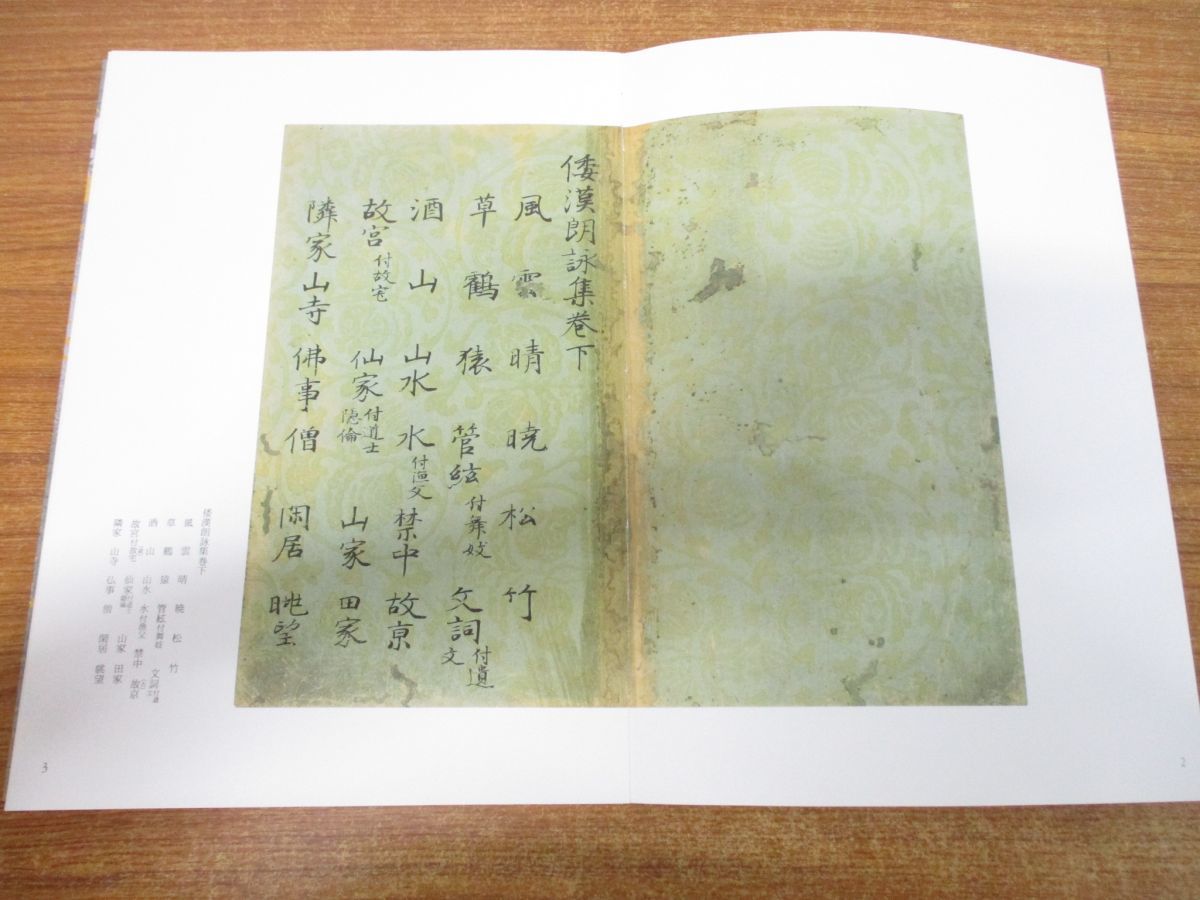 倭漢朗詠集巻下
風 雲 晴 暁 松 竹
草 鶴 猿 管絃付舞妓 文詞付遺文
酒 山 山水 水付漁父 禁中 故京
故宮付故宅 仙家付道士隠倫 山家 田家
隣家 山寺 佛事 僧 閑居 眺望
倭漢朗詠集巻下
風 雲 晴 暁 松 竹
草 鶴 猿 管絃付舞妓 文詞付遺文
酒 山 山水 水付漁父 禁中 故京
故宮付故宅 仙家付道士隠倫 山家 田家
隣家 山寺 仏事 僧 閑居 眺望
3
2